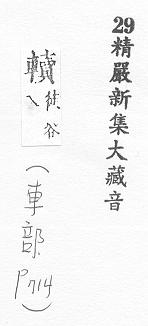 29精嚴新集大藏音
徒谷
入
(車部 P714)